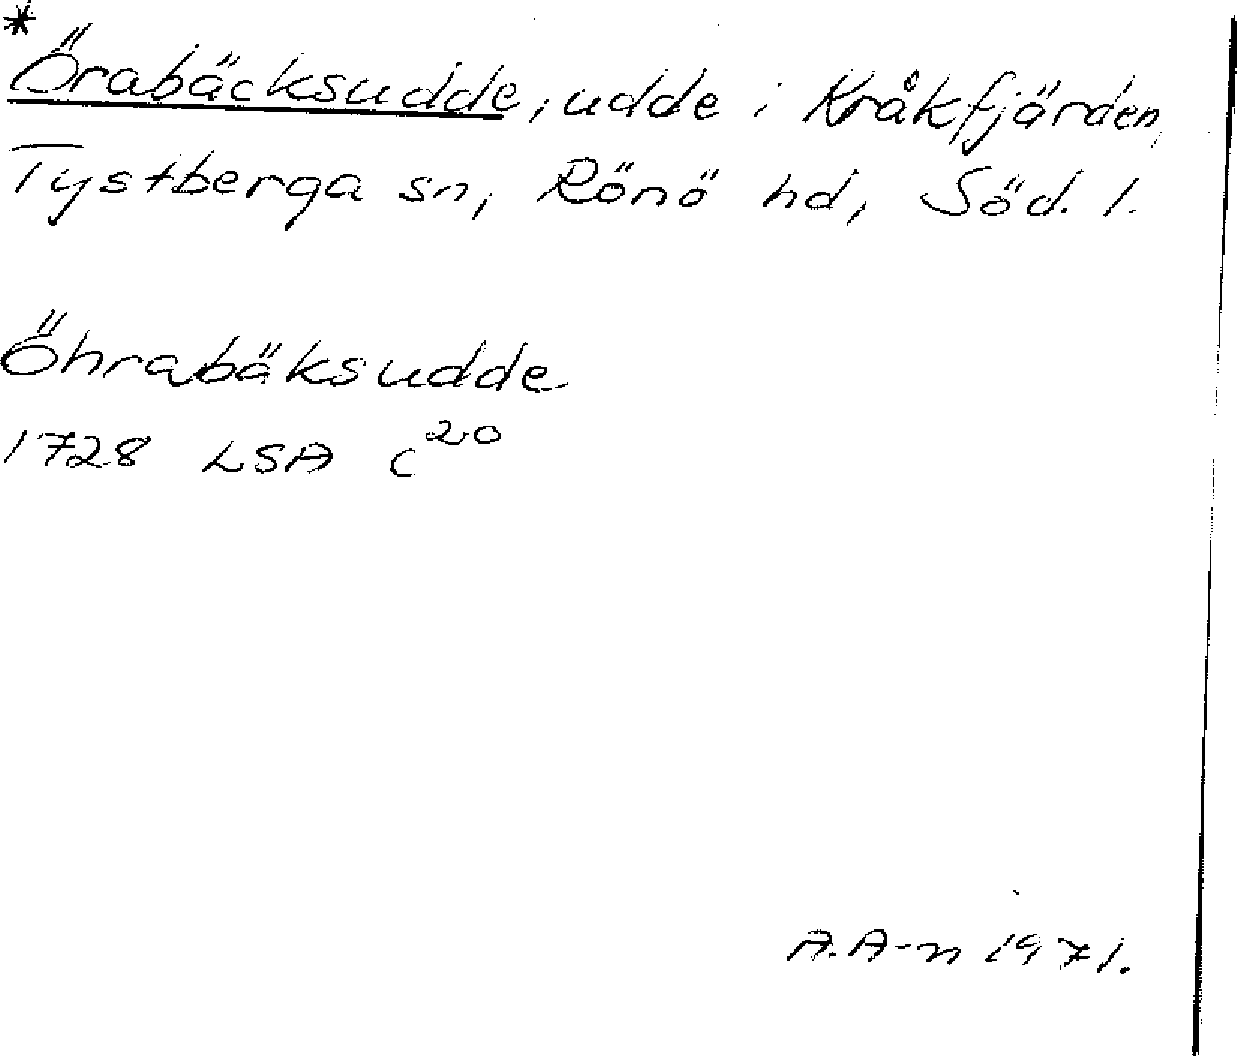 *
Örabäcksudde, udde i Kråkfjärden,
Tystberga sn, Rönö hd, Söd. l.
Öhrabäksudde
1728 LSA C20
A.A-n 1971.